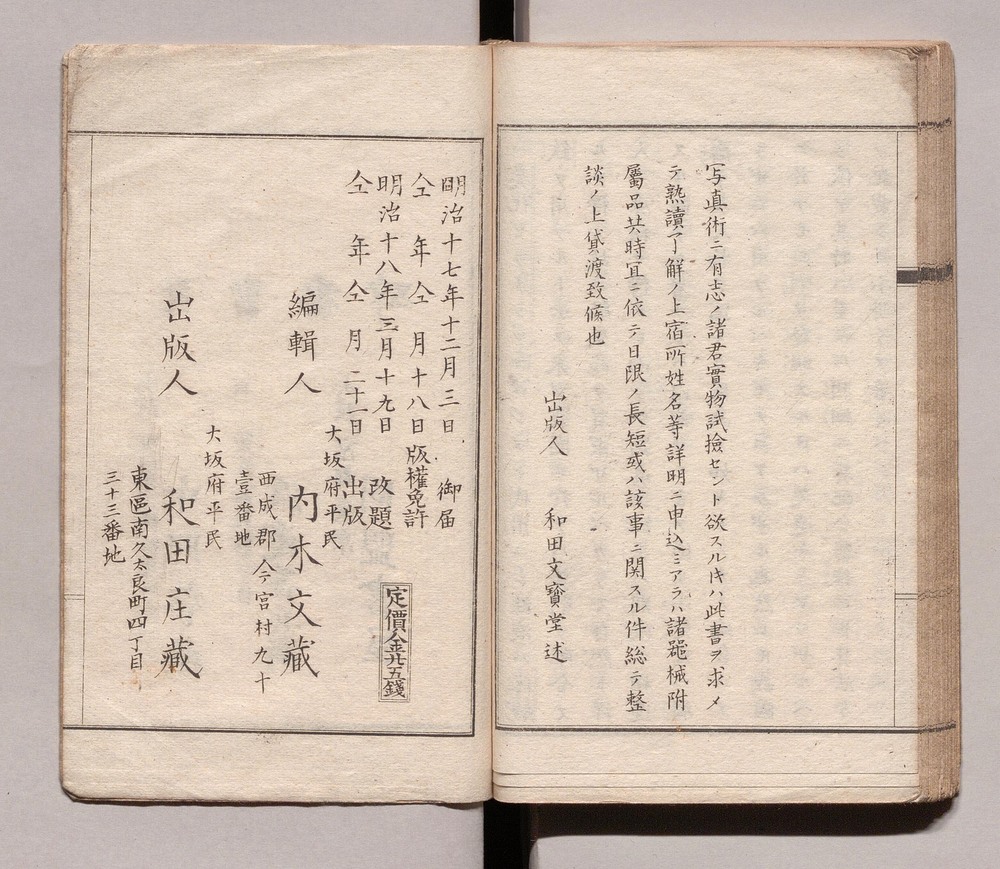 写真術ニ有志ノ諸君實物試撿セント欲スルトキハ此書ヲ求メ
テ熟讀了解ノ上宿所姓名等詳明ニ申込ミアラハ諸噐械附
屬品共時宜ニ依テ日限ノ長短或ハ該事ニ関スル件総テ整
談ノ上貸渡致候也
出版人 和田文寳堂述
明治十七年十二月三日 御届
仝 年仝 月十八日版權免許
明治十八年三月十九日 改題
仝 年仝 月二十一日出版
定價金廿五錢
大坂府平民
編輯人 内木文藏
西成郡今宮村九十
壹番地
大坂府平民
出版人 和田庄藏
東區南久太良町四丁目
三十三番地